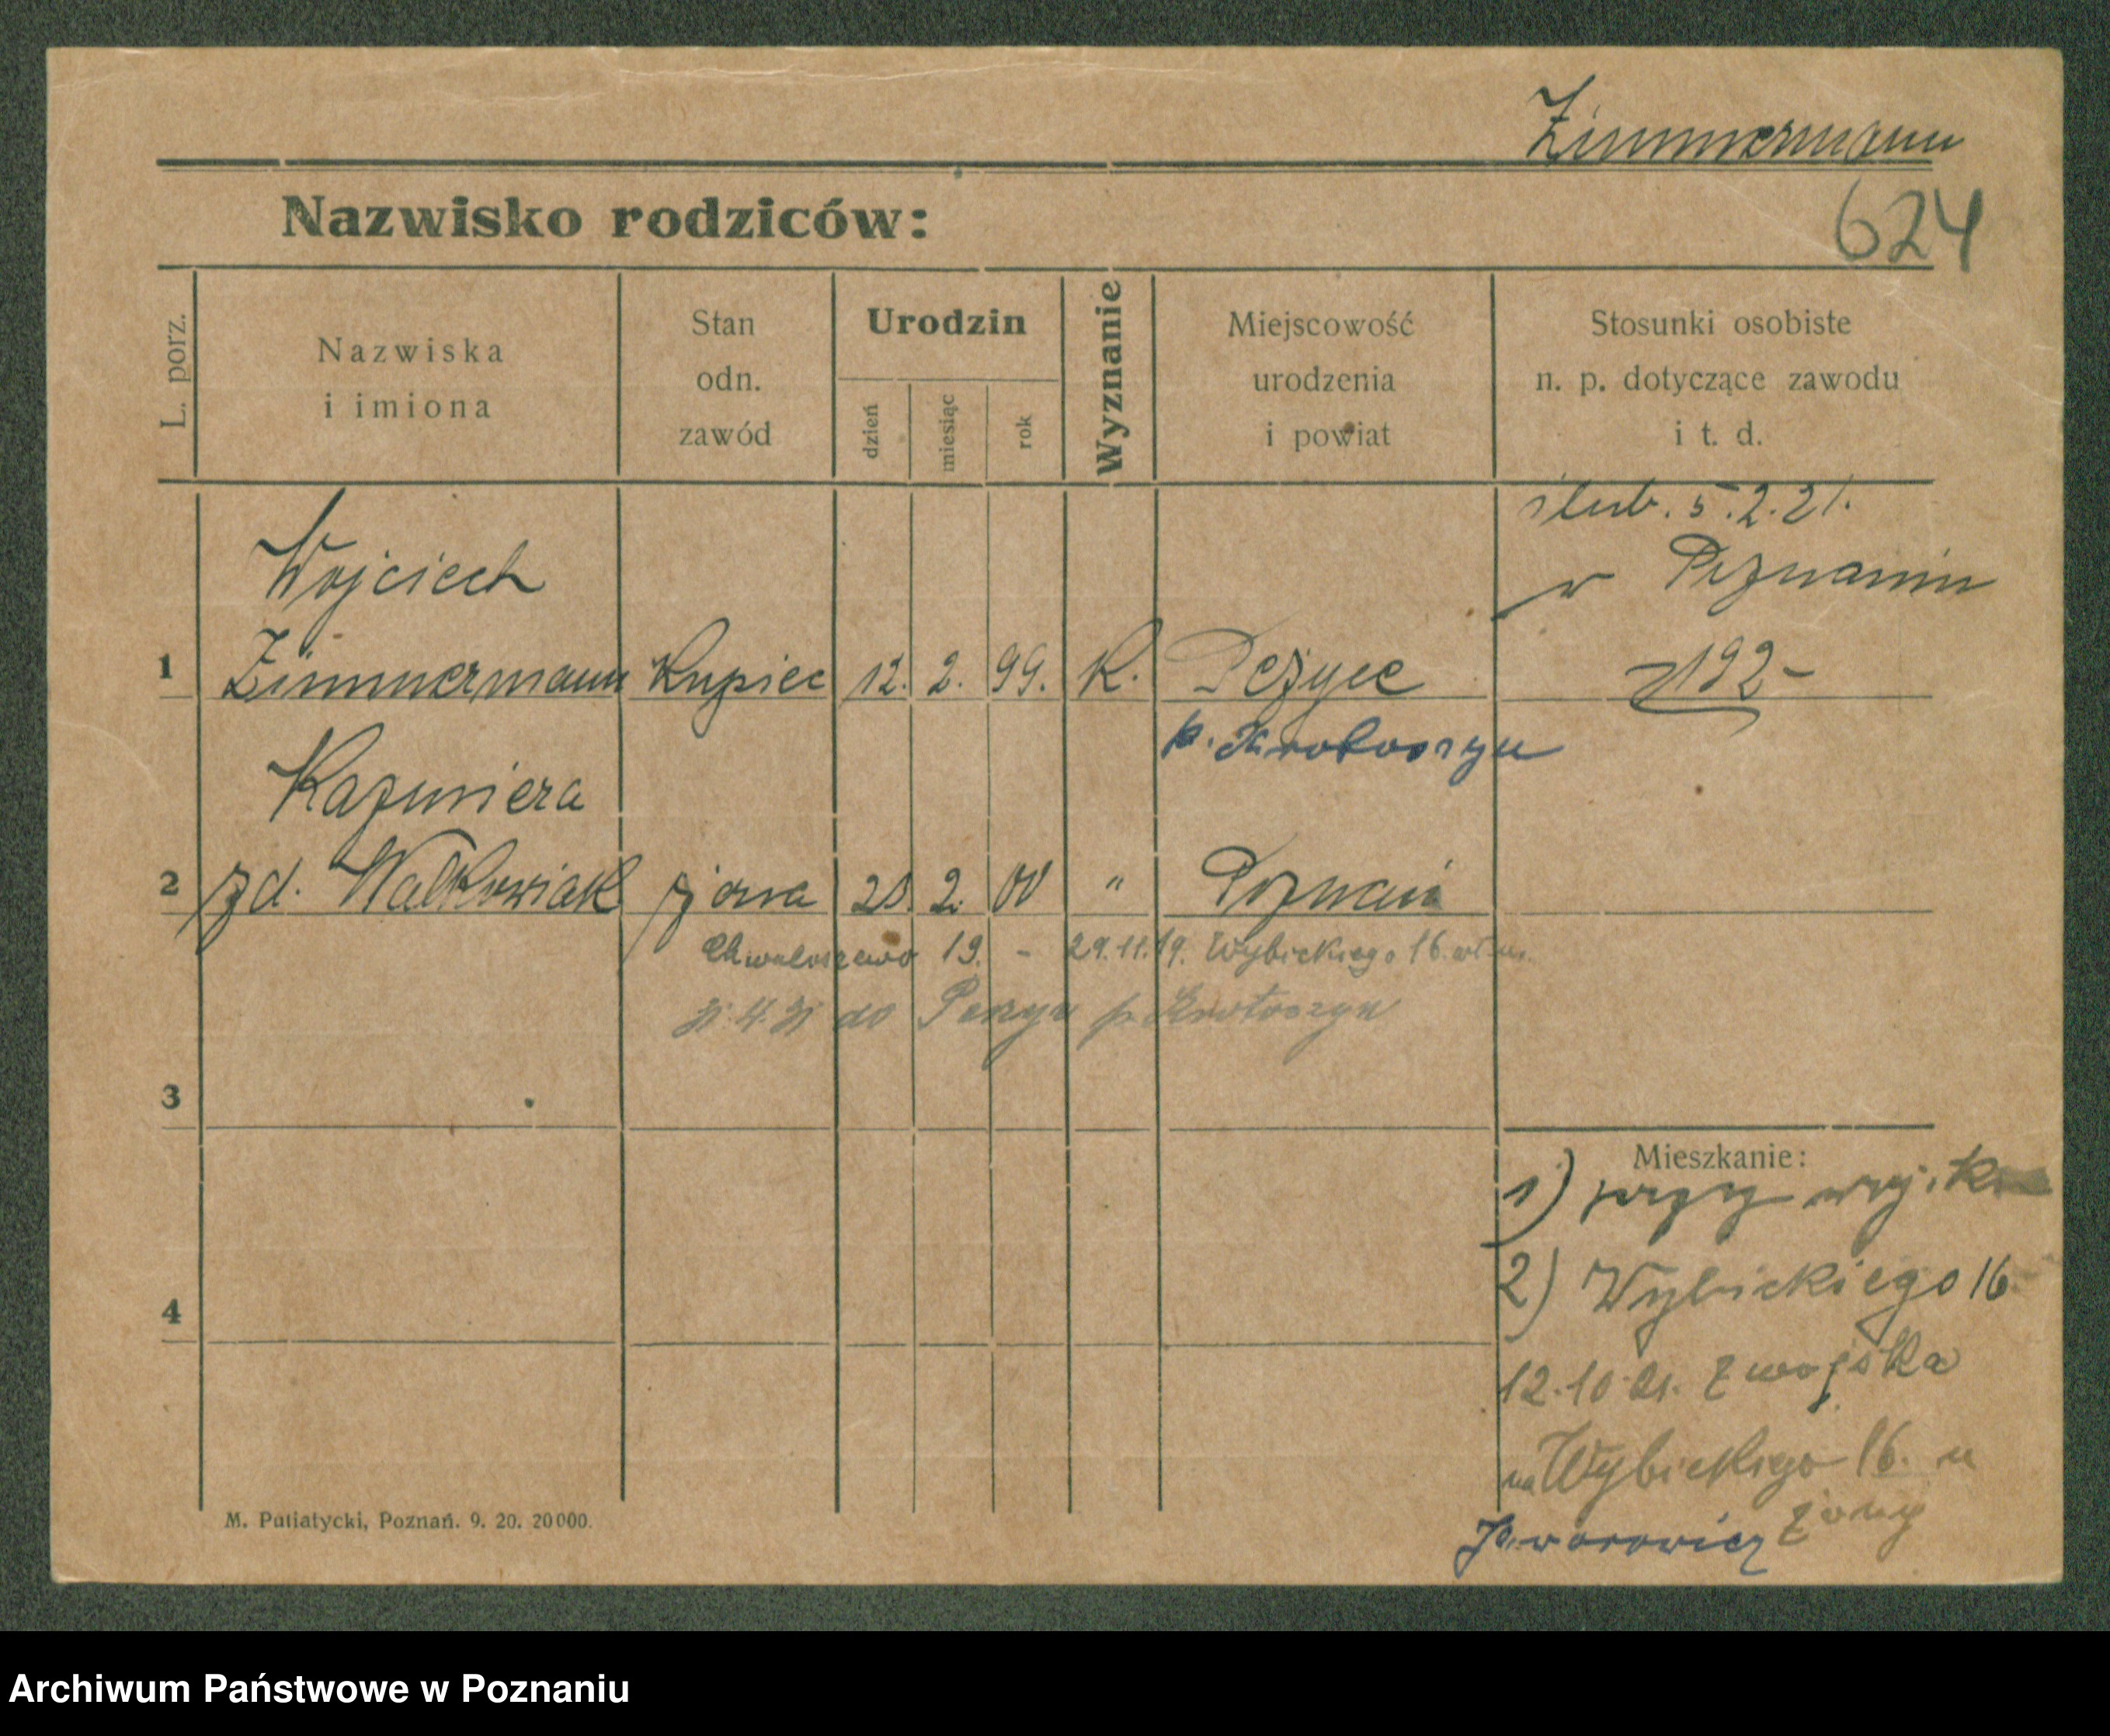 Zimmermann
Nazwisko rodziców:
624
L. porz.
Nazwiska
i imiona
Stan
odn.
zawód
Urodzin
dzień
miesiąc
rok
Wyznanie
Miejscowość
urodzenia
i powiat
Stosunki osobiste
n. p. dotyczące zawodu
i t. d.
ślub. 5.2.21.
w Poznaniu
Wojciech
1 Zimmermann Kupiec 12. 2. 99. K.
192-
p. Krotoszyn
Kazimiera
2 zd. Walkowiak żona 2. 00 " Poznań
Chwaliszewo 19. - 29.11.19. Wybickiego 16.
do p. Krotoszyn
3
Mieszkanie:
1) przy
2) Wybickiego 16
4
12.10.21. z wojska
na Wybickiego 16. u
żony
Jaworowicz
M. Putiatycki, Poznań. 9. 20. 20000.
Archiwum Państwowe w Poznaniu